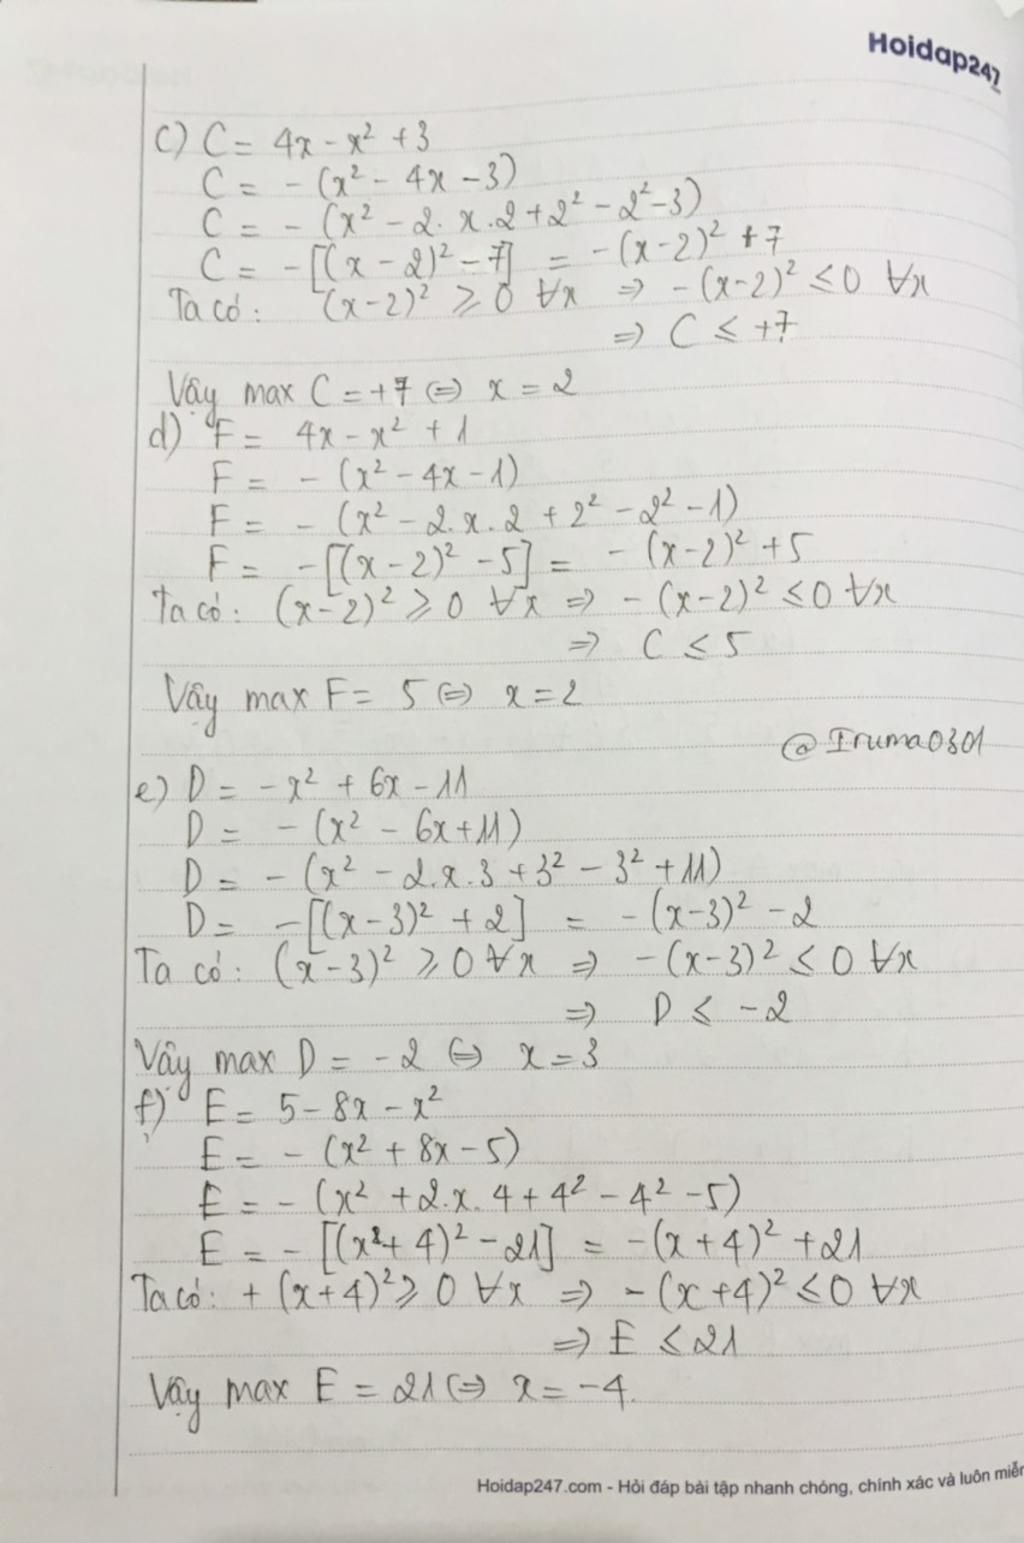 Hoidap247
c) C = 4x - x² + 3
C = - (x² - 4x - 3)
C = - (x² - 2. x . 2 + 2² - 2² - 3)
C = - [(x - 2)² - 7] = - (x - 2)² + 7
Ta có: (x - 2)² ⩾ 0 ∀x ⇒ - (x - 2)² ≤ 0 ∀x
⇒ C ≤ +7
Vậy max C = +7 ⇔ x = 2
d) F = 4x - x² + 1
F = - (x² - 4x - 1)
F = - (x² - 2. x . 2 + 2² - 2² - 1)
F = - [(x - 2)² - 5] = - (x - 2)² + 5
Ta có: (x - 2)² ⩾ 0 ∀x ⇒ - (x - 2)² ≤ 0 ∀x
⇒ C ≤ 5
Vậy max F = 5 ⇔ x = 2
@Iruma0301
e) D = - x² + 6x - 11
D = - (x² - 6x + 11)
D = - (x² - 2. x . 3 + 3² - 3² + 11)
D = - [(x - 3)² + 2] = - (x - 3)² - 2
Ta có: (x - 3)² ⩾ 0 ∀x ⇒ - (x - 3)² ≤ 0 ∀x
⇒ D ≤ - 2
Vậy max D = - 2 ⇔ x = 3
f) E = 5 - 8x - x²
E = - (x² + 8x - 5)
E = - (x² + 2. x . 4 + 4² - 4² - 5)
E = - [(x + 4)² - 21] = - (x + 4)² + 21
Ta có: + (x + 4)² ⩾ 0 ∀x ⇒ - (x + 4)² ≤ 0 ∀x
⇒ E ≤ 21
Vậy max E = 21 ⇔ x = - 4.
Hoidap247.com - Hỏi đáp bài tập nhanh chóng, chính xác và luôn miễn